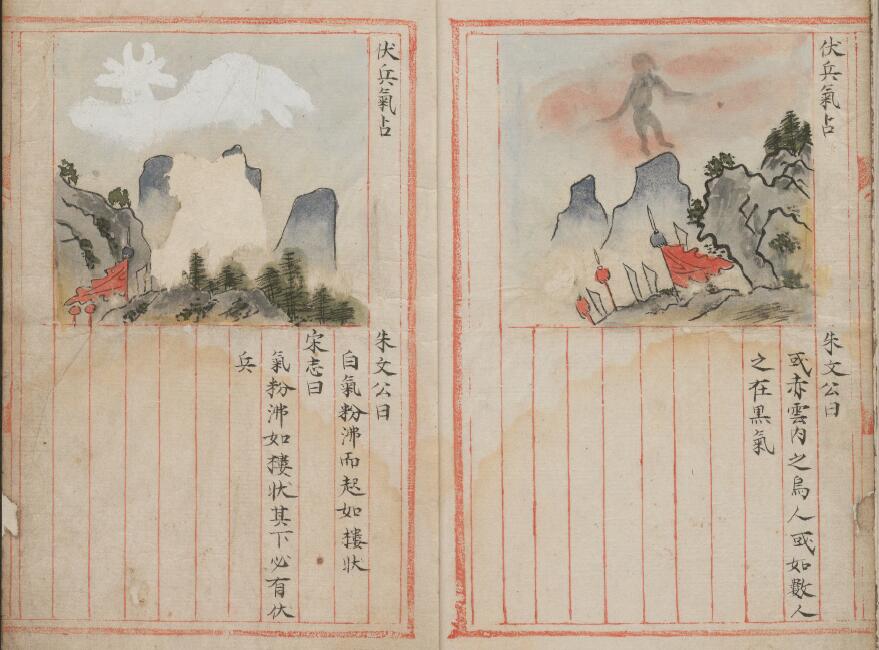 伏兵氣占
朱文公曰
或赤雲内之烏人或如數人
之在黒氣
伏兵氣占
朱文公曰
白氣粉沸而起如樓狀
宋志曰
氣粉沸如樓狀其下必有伏
兵